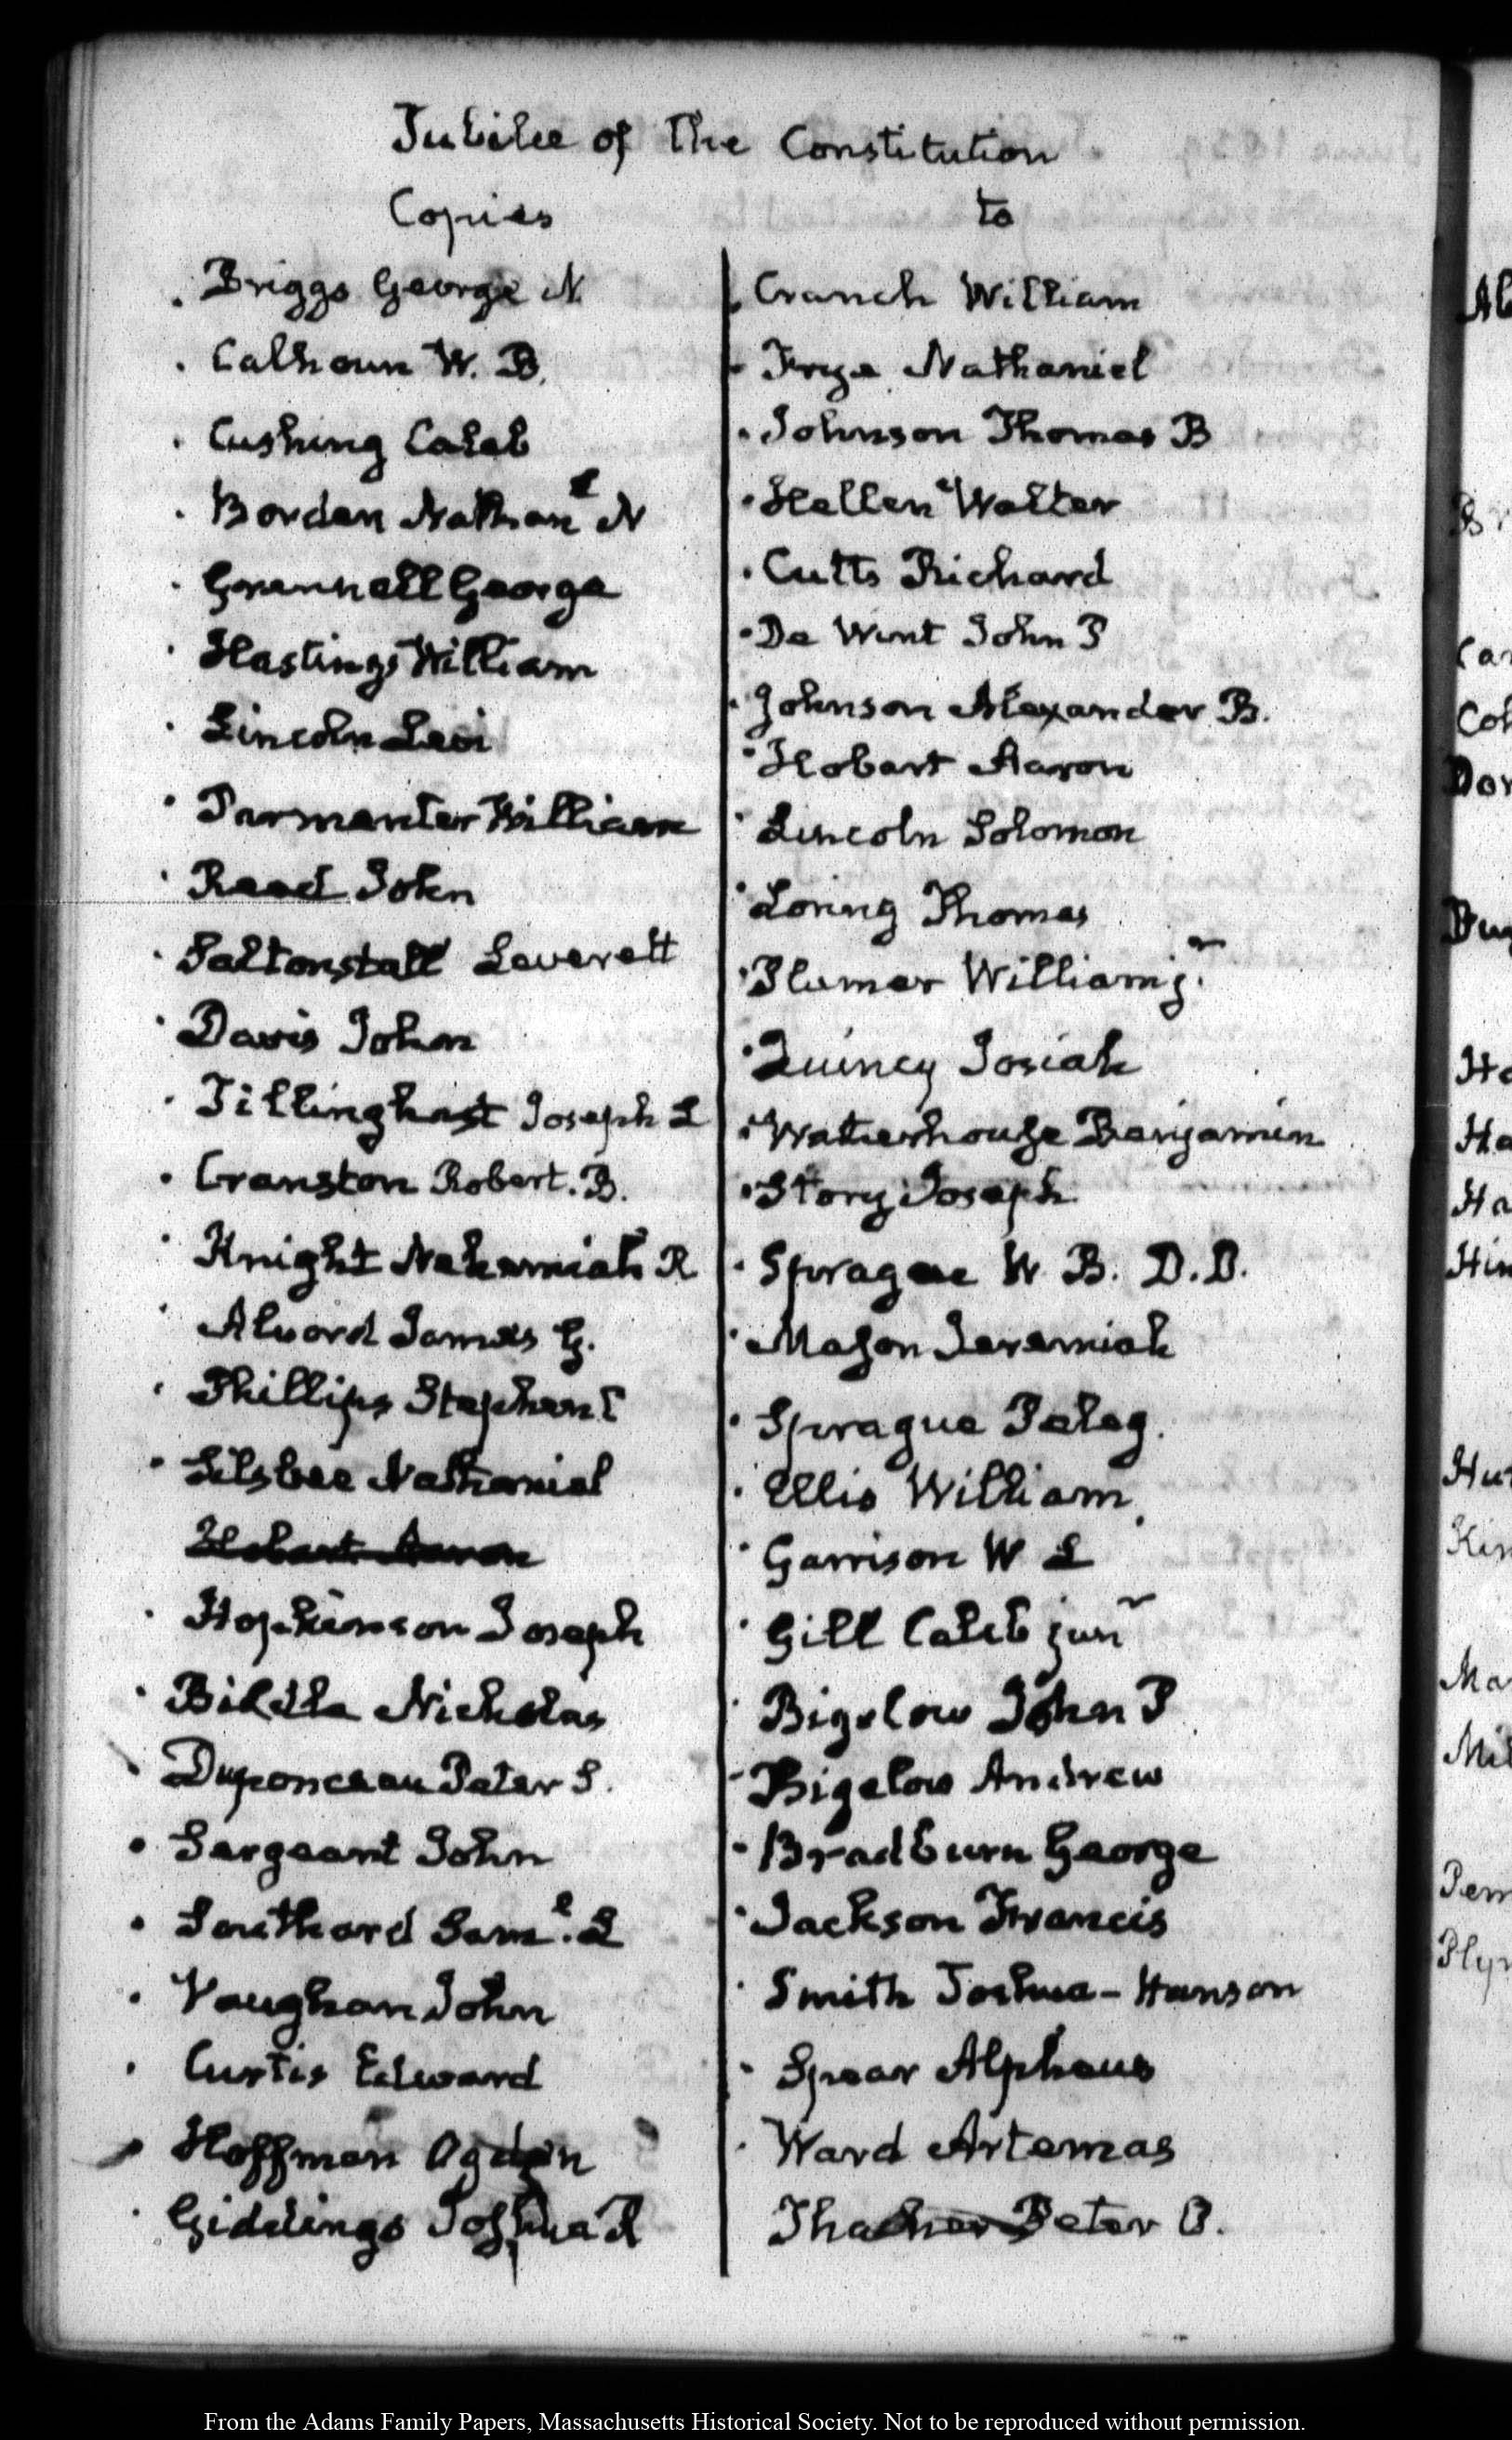 Jubilee of the Constitution
Copies to
Briggs George N
Calhoun W. B.
Cushing Caleb
Borden Nathanl N
Grennell George
Hastings William
Lincoln Levi
Parmenter William
Reed John
Saltonstall Leverett
Davis John
Tillinghast Joseph L
Cranston Robert. B.
Knight Nehemiah R
Alvord James G.
Phillips Stephen C
Silsbee Nathaniel
Hobart Aaron
Hopkinson Joseph
Biddle Nicholas
Duponceau Peter S.
Sergeant John
Southard Saml. L
Vaughan John
Curtis Edward
Hoffman Ogden
Giddings Joshua R
Cranch William
Frye Nathaniel
Johnson Thomas B
Hellen Walter
Cutts Richard
De Wint John P
Johnson Alexander B.
Hobart Aaron
Lincoln Solomon
Loring Thomas
Plumer William jr.
Quincy Josiah
Waterhouse Benjamin
Story Joseph
Sprague W. B. D.D.
Mason Jeremiah
Sprague Peleg.
Ellis William
Garrison W L
Gill Caleb junr
Bigelow John P
Bigelow Andrew
Bradburn George
Jackson Francis
Smith Joshua-Hanson
Spear Alpheus
Ward Artemas
Thacher Peter O.
Car
Col
Dor
Ha
Ha
Ha
Hin
Kin
Ma
Mil
Pem
Plym
From the Adams Family Papers, Massachusetts Historical Society. Not to be reproduced without permission.